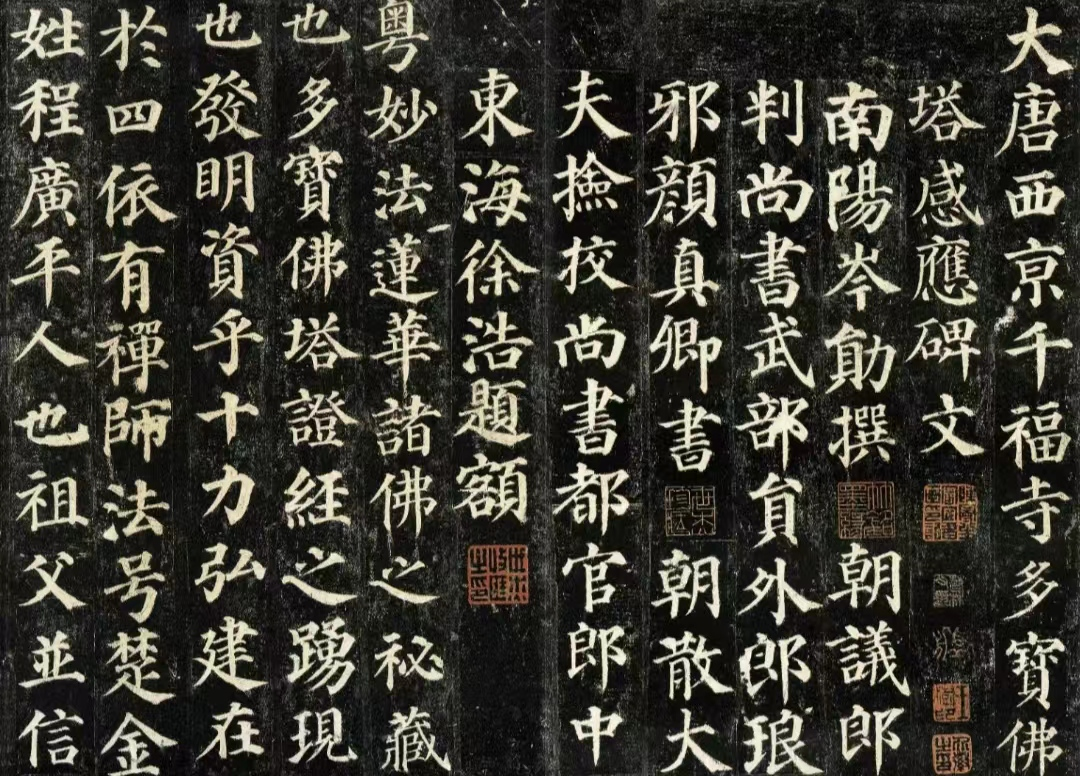 大唐西京千福寺多寶佛
塔感應碑文
南陽岑勛撰 朝議郎
判尚書武部貟外郎琅
邪顏真卿書 朝散大
夫撿挍尚書都官郎中
東海徐浩題額
粵妙法蓮華諸佛之祕藏
也多寶佛塔證經之踴現
也發明資乎十力弘建在
於四依有禪師法号楚金
姓程廣平人也祖父並信